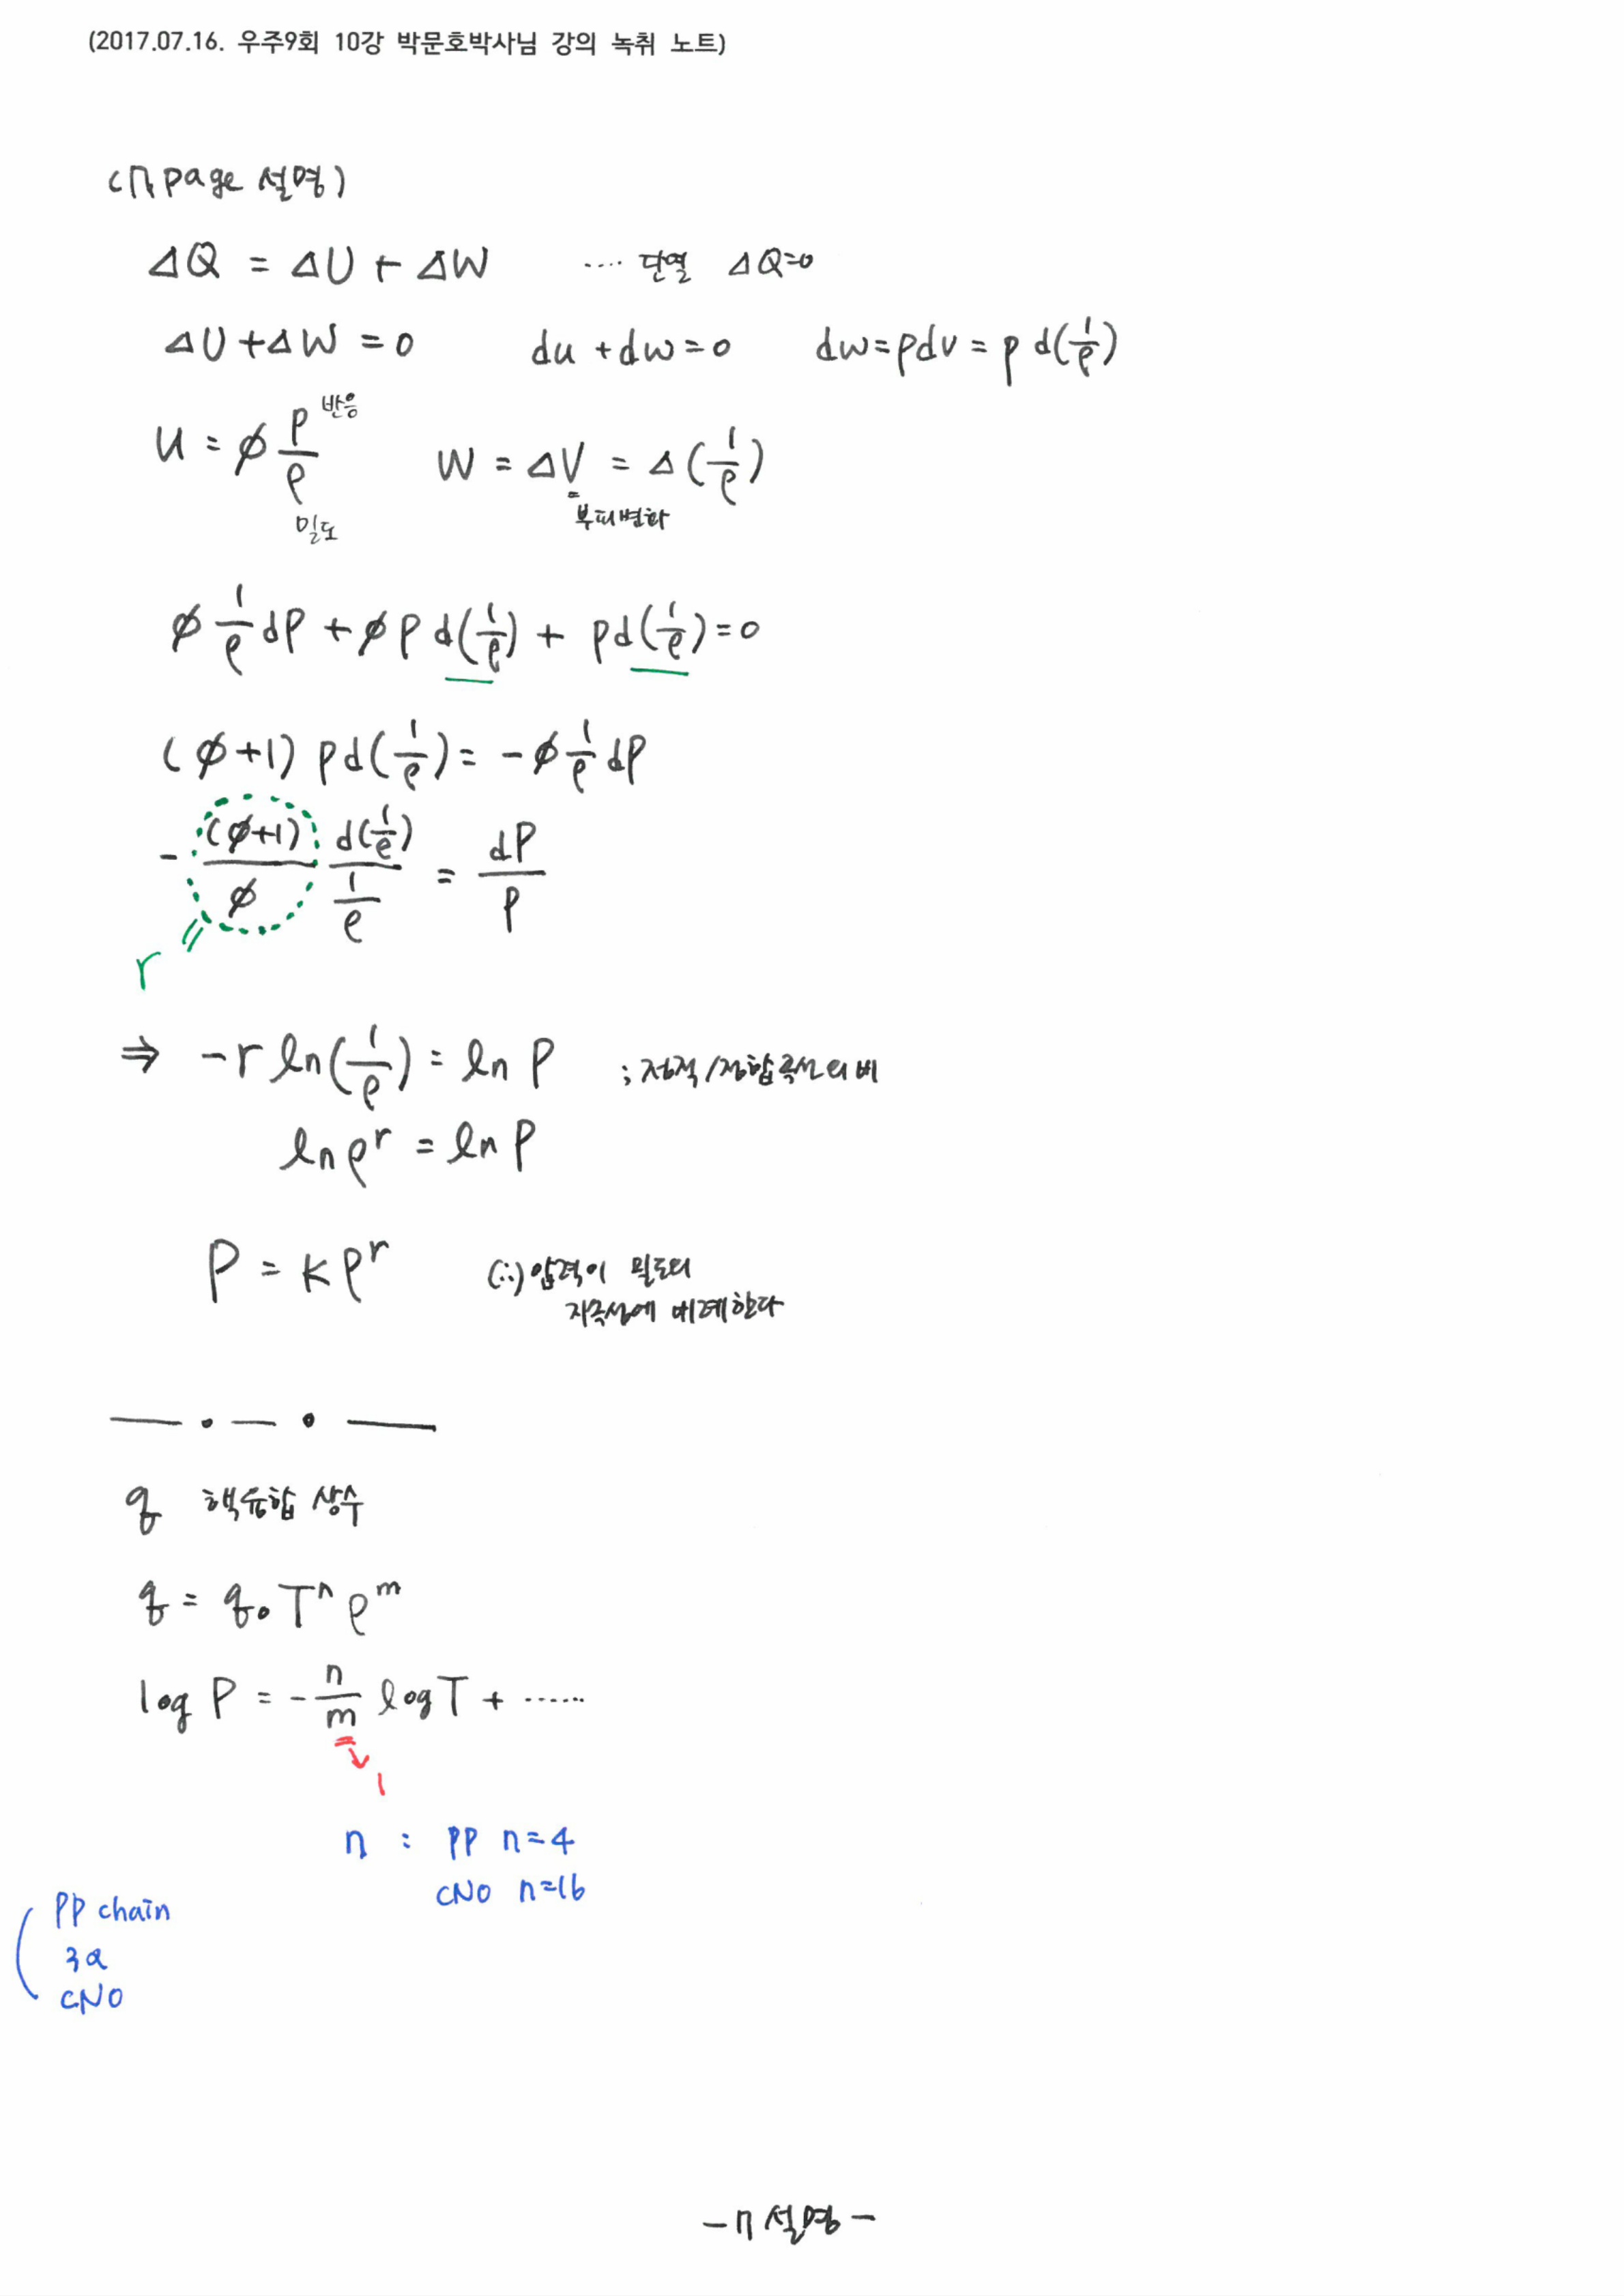 (2017.07.16. 우주9회 10강 박문호박사님 강의 녹취 노트)
(17 page 설명)
ΔQ = ΔU + ΔW ···· 단열 ΔQ=0
ΔU+ΔW=0 du+dw=0 dw=pdv=p d(1/ρ)
u = φ P/ρ 반응 밀도 W = ΔV = Δ(1/ρ) 부피변화
φ 1/ρ dP + φ P d(1/ρ) + pd(1/ρ)=0
(φ+1) pd(1/ρ) = -φ 1/ρ dP
- (φ+1)/φ d(1/ρ)/(1/ρ) = dP/P
r
⇒ -r ln(1/ρ) = ln P ; 정적/정압
ln ρ^r = ln P
P = Kρ^r (∴) 압력이 밀도의
지수승에 비례한다
q 핵융합 상수
q = q₀ T^n ρ^m
log P = - n/m log T + ······
1
n : PP n=4
CNO n=16
PP chain
3α
CNO
- 17 설명 -